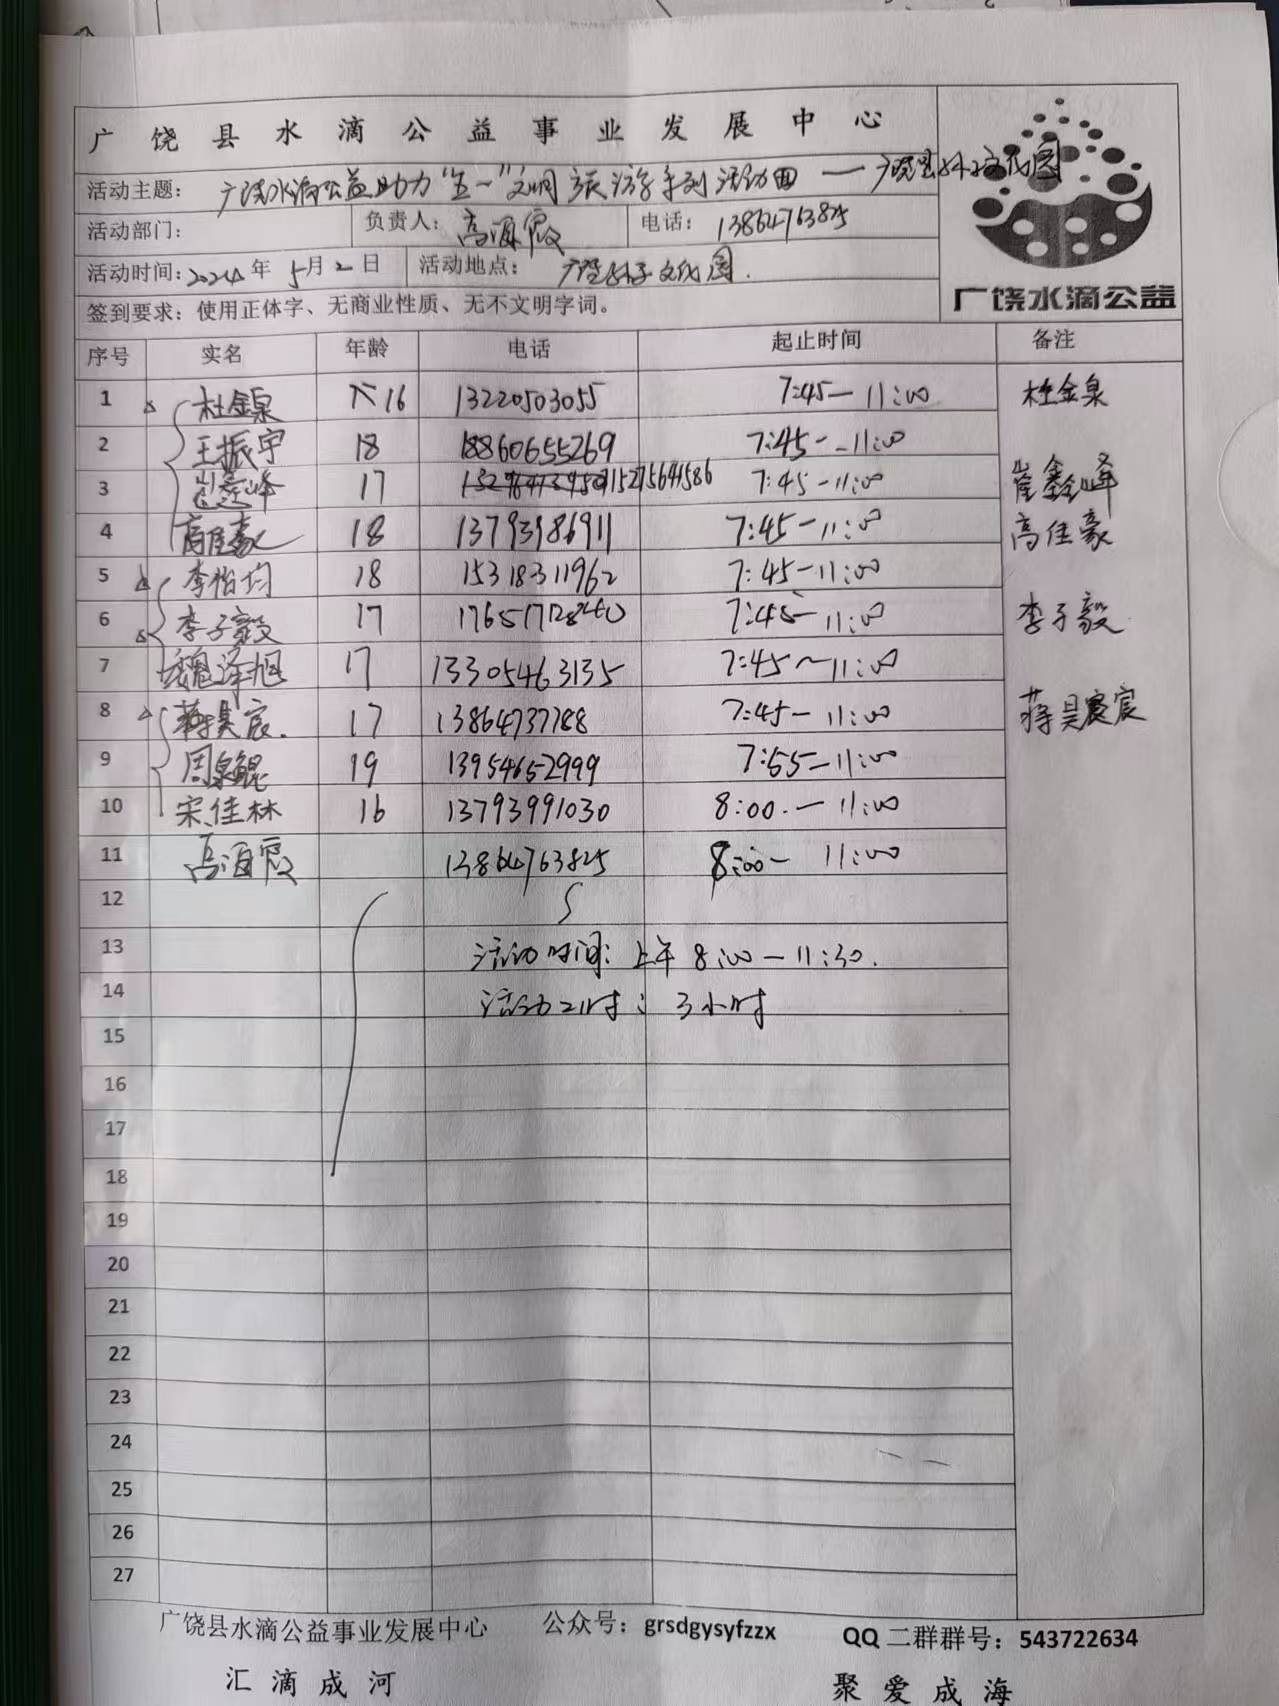 广饶县水滴公益事业发展中心
活动主题: 广饶水滴公益助力"五一"文明旅游系列活动四 — 广饶县孙子文化园
活动部门: 负责人: 高海霞 电话: 13864763825
活动时间: 2024年5月2日 活动地点: 广饶孙子文化园.
签到要求: 使用正体字、无商业性质、无不文明字词。
广饶水滴公益
序号 实名 年龄 电话 起止时间 备注
1 杜金泉 16 13220503055 7:45—11:00 杜金泉
2 王振宇 18 18860655269 7:45--11:00
3 崔鑫峰 17 15275641586 7:45-11:00 崔鑫峰
4 高佳豪 18 13793986911 7:45-11:00 高佳豪
5 李怡均 18 15318311962 7:45-11:00
6 李子毅 17 7:45-11:00 李子毅
7 魏泽旭 17 13305463135 7:45~11:00
8 蒋昊宸. 17 13864737788 7:45-11:00 蒋昊宸
9 周泉鲲 19 13954652999 7:55-11:00
10 宋佳林 16 13793991030 8:00.—11:00
11 高海霞 13864763825 8:00- 11:00
12
13 活动时间: 上午 8:00—11:30.
14 活动工时: 3小时
15
16
17
18
19
20
21
22
23
24
25
26
27
广饶县水滴公益事业发展中心 公众号: grsdgysyfzzx QQ二群群号: 543722634
汇滴成河 聚爱成海